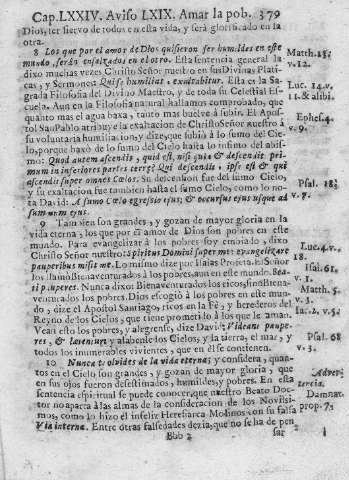 Cap. LXXIV. Aviso LXIX. Amar la pob. 379
Dios, ser siervo de todos en esta vida, y será glorificado en la
otra.
8 Los que por el amor de Dios quisieron ser humildes en este
mundo, serán ensalzados en el otro. Esta sentencia general la
dixo muchas vezes Christo Señor nuestro en sus Divinas Platicas,
y Sermones Qui se humiliat, exaltabitur. Esta es la Sagrada
Filosofia del Divino Maestro, y de toda su Celestial Escuela.
Aun en la Filosofia natural hallamos comprobado, que
quanto mas el agua baxa, tanto mas buelve à subir. El Apostol
San Pablo atribuye la exaltacion de Christo Señor nuestro à
su voluntaria humiliacion; y dize, que subiò à lo sumo del Cielo,
porque baxò de lo sumo del Cielo hasta lo infimo del abismo:
Quod autem ascendit, quid est, nisi quia & descendit primum
in inferiores partes terræ? Qui descendit, ipse est & qui
ascendit super omnes Cœlos. Su descension fue del sumo Cielo,
y su exaltacion fue tambien hasta el sumo Cielo, como lo nota
David: A summo Cœlo egressio ejus; & occursus ejus usque ad
summum ejus.
9 Tambien son grandes, y gozan de mayor gloria en la
vida eterna, los que por el amor de Dios son pobres en este
mundo. Para evangelizar à los pobres soy embiado, dixo
Christo Señor nuestro: Spiritus Domini super me: evangelizare
pauperibus misit me. Lo mismo dize por Isaias Profeta: el Señor
los llamò Bienaventurados à los pobres, aun en este mundo. Beati
pauperes. Nunca dixo: Bienaventurados los ricos, sino Bienaventurados
los pobres. Dios escogiò à los pobres en este mundo,
dize el Apostol Santiago, ricos en la Fè, y herederos del
Reyno de los Cielos, que tiene prometido à los que le aman.
Vean esto los pobres, y alegrense, dize David: Videant pauperes,
& lætentur, y alabenle los Cielos, y la tierra, el mar, y
todos los inumerables vivientes, que en èl se contienen.
10 Nunca te olvides de la vida eterna; y considera, quantos
en el Cielo son grandes, y gozan de mayor gloria, que
en sus ojos fueron desestimados, humildes, y pobres. En esta
sentencia espiritual se puede conocer, que nuestro Beato Doctor
no aparta à las almas de la consideracion de los Novissimos,
como lo hizo el infeliz Heresiarca Molinos con su falsa
Via interna. Entre otras falsedades dezia, que no se ha de pen-
Bbb 2
sar
Matth. 18.
v. 12.
Luc. 14. v.
11. & alibi.
Ephes. 4.
v. 9.
Psal. 18.
v. 7.
Luc. 4. v.
18.
Isai. 61.
v. 1.
Matth. 5.
v. 3.
Iac. 2. v. 5.
Psal. 68
v. 3.
Advertercia.
Damnat.
prop. 7.